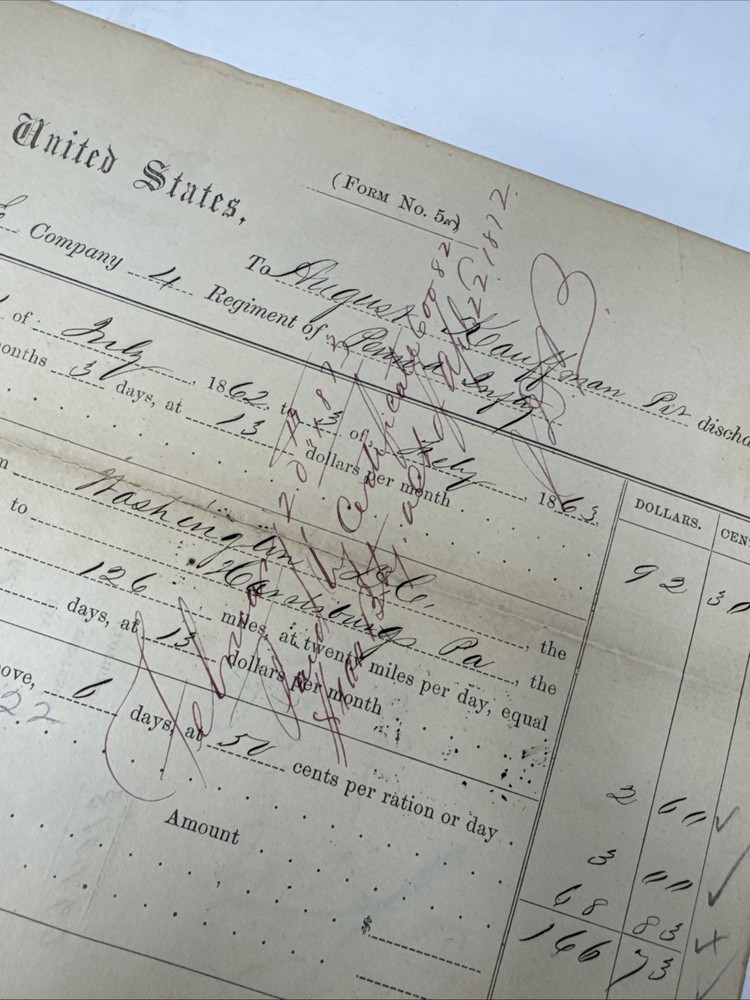 (Form No. 5
United States,
To August Kauffman Pvt discha
Company 4 Regiment of Penn'a Infy
of July, 1862, to 3 of July, 1863,
months 3 days, at 13 dollars per month
DOLLARS. CEN
92 30
Washington D.C., the
to Harrisburg Pa, the
126 miles, at twenty miles per day, equal
days, at 13 dollars per month
2 60
ove, 6 days, at 50 cents per ration or day
3 00
22
68 83
Amount
166 73
$
February
Certificate 60082
act
22 1872